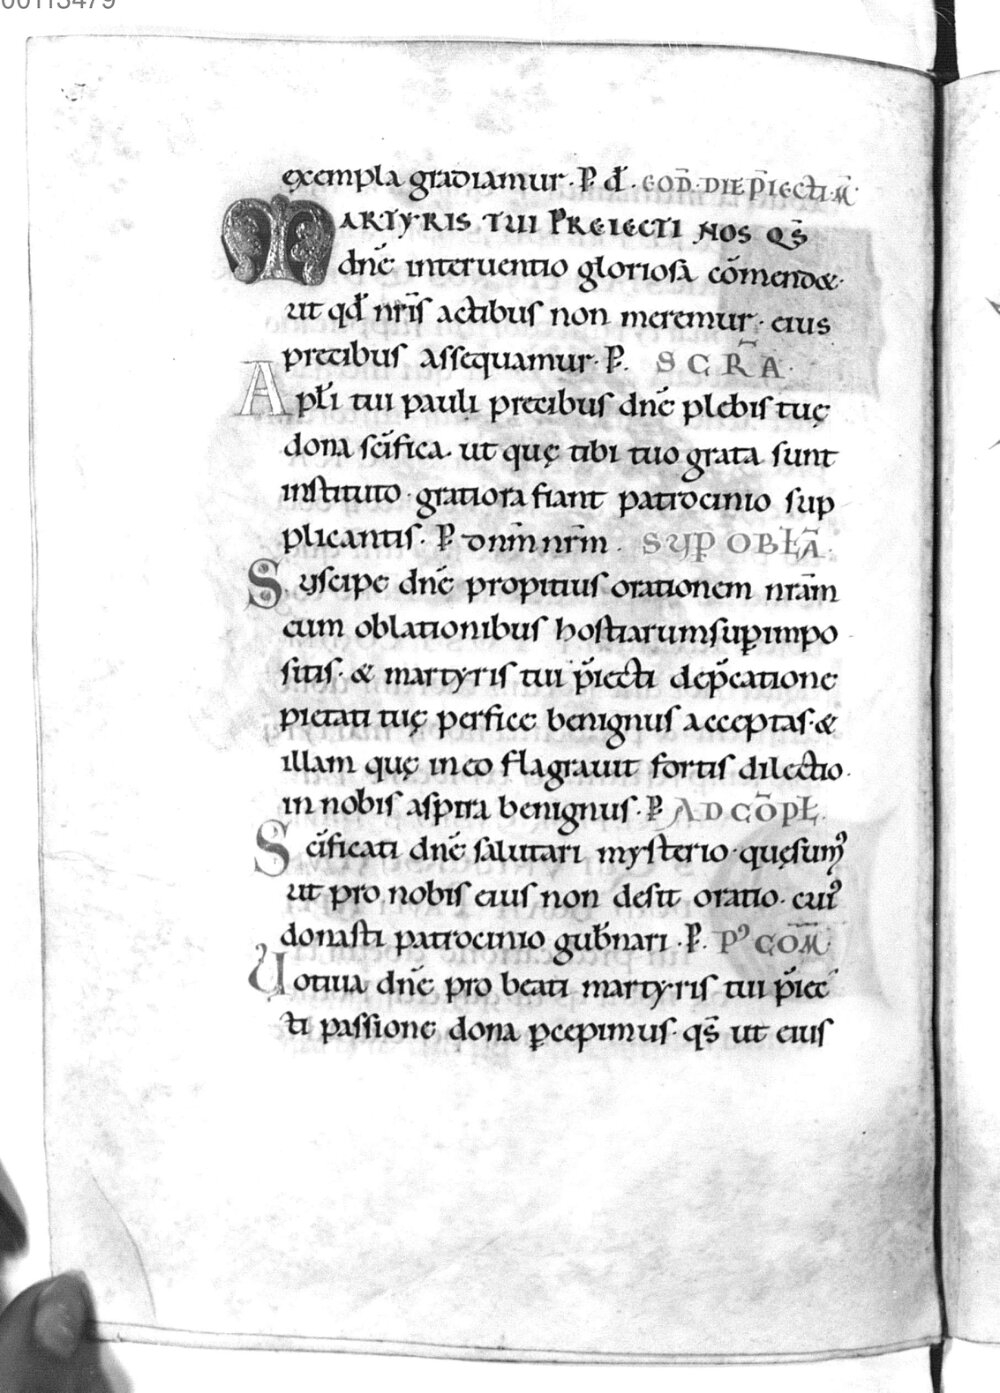 00113479
exempla gradiamur. P. d̄. EOD̄. DIE P̄IECTI. M̄.
MARTYRIS TUI PREIECTI NOS QS̄
dn̄e interuentio gloriosa cōmendet.
ut qđ nr̄is actibus non meremur. eius
precibus assequamur. P. SECRA.
Apłi tui pauli precibus dn̄e plebis tuę
dona sc̄ifica. ut quę tibi tuo grata sunt
instituto. gratiora fiant patrocinio sup
plicantis. P̄ dnm̄ nrm̄. SUP OBŁA.
Suscipe dn̄e propitius orationem nr̄am
cum oblationibus hostiarum supimpo
sitis. & martyris tui p̄iecti dep̄catione
pietati tuę perfice benignus acceptas. &
illam quę in eo flagrauit fortis dilectio.
in nobis aspira benignus. P AD COPŁ.
Sc̄ificati dn̄e salutari mysterio. quęsumꝰ
ut pro nobis eius non desit oratio. cuiꝰ
donasti patrocinio gub̄nari. P. Pꝰ COM̄
Uotiua dn̄e pro beati martyris tui p̄iec
ti passione dona ꝑcepimus. qs̄ ut eius